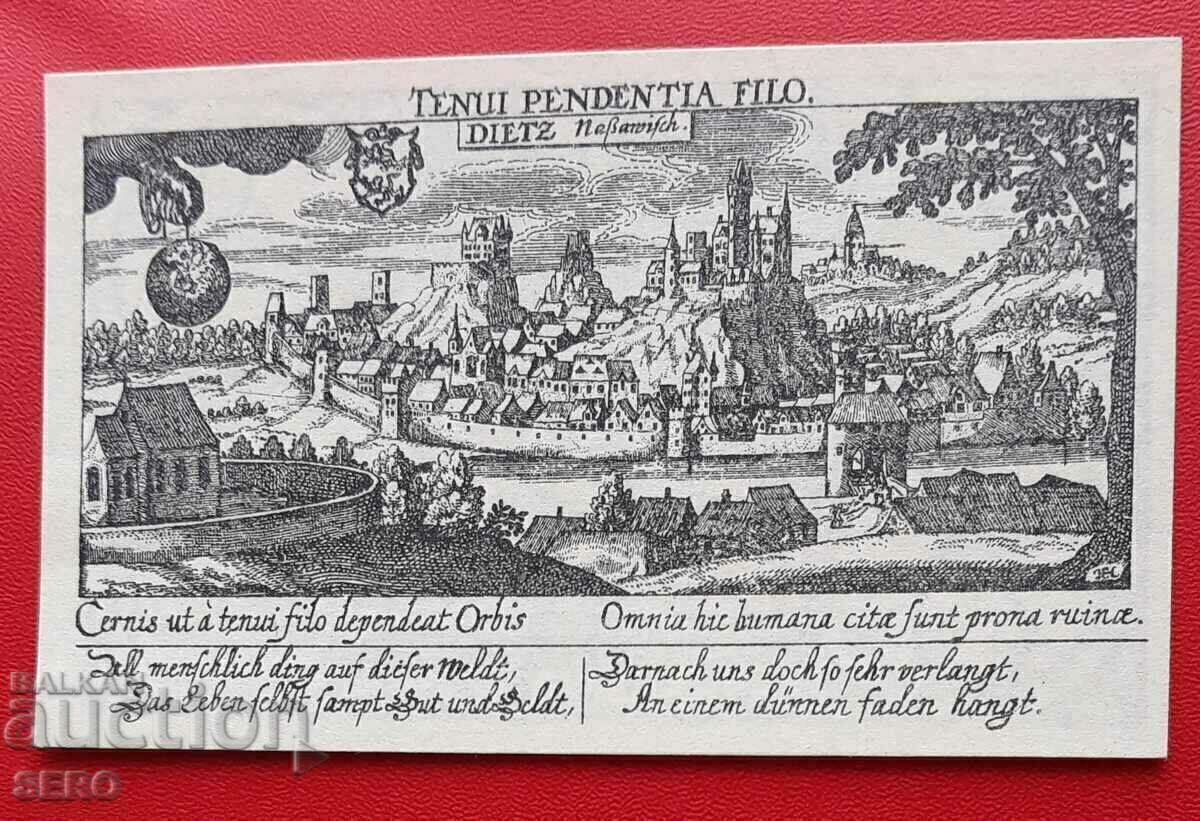 TENUI PENDENTIA FILO.
DIETZ Naßawiſch.
Cernis ut à tenui filo dependeat Orbis
Omnia hic humana citæ ſunt prona ruinæ.
All menſchlich ding auf dieſer Weldt,
Das Leben ſelbſt ſampt Gut und Geldt,
Darnach uns doch ſo ſehr verlangt,
An einem dünnen faden hangt.
BALKAN
auction
SERO